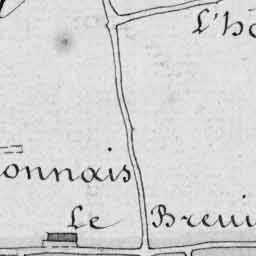 L'h
onnais
Le Breui